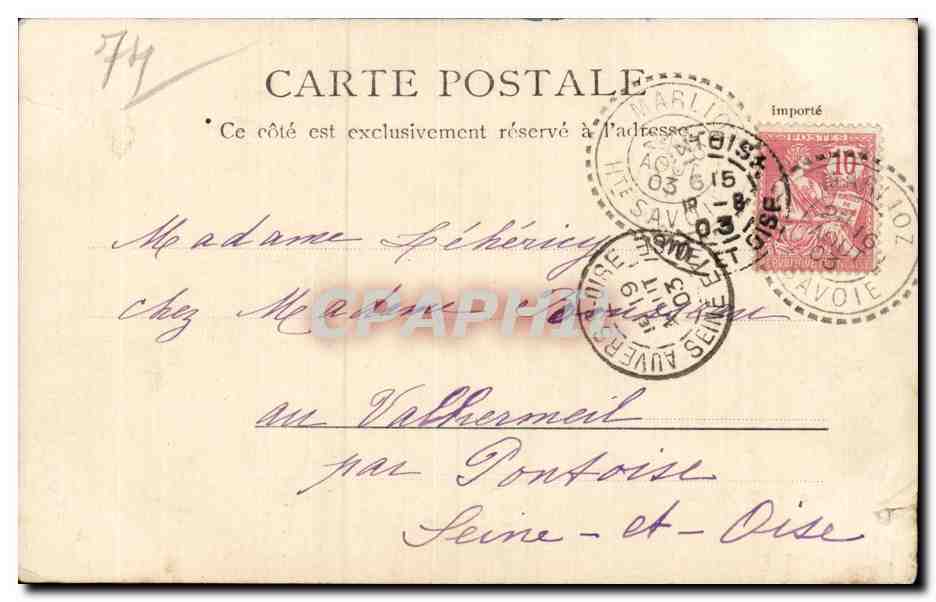 74
CARTE POSTALE
importé
Ce côté est exclusivement réservé à l'adresse
POSTES
10
MARLIOZ
HTE SAVOIE
AOUT
03
TOISE
6 15
8
03
ET OISE
MARLIOZ
16
SAVOIE
AUVERS S. OISE
SEINE ET OISE
19
03
CPAPHIL
Madame Léhéricy
chez Madame
au Valhermeil
par Pontoise
Seine-et-Oise